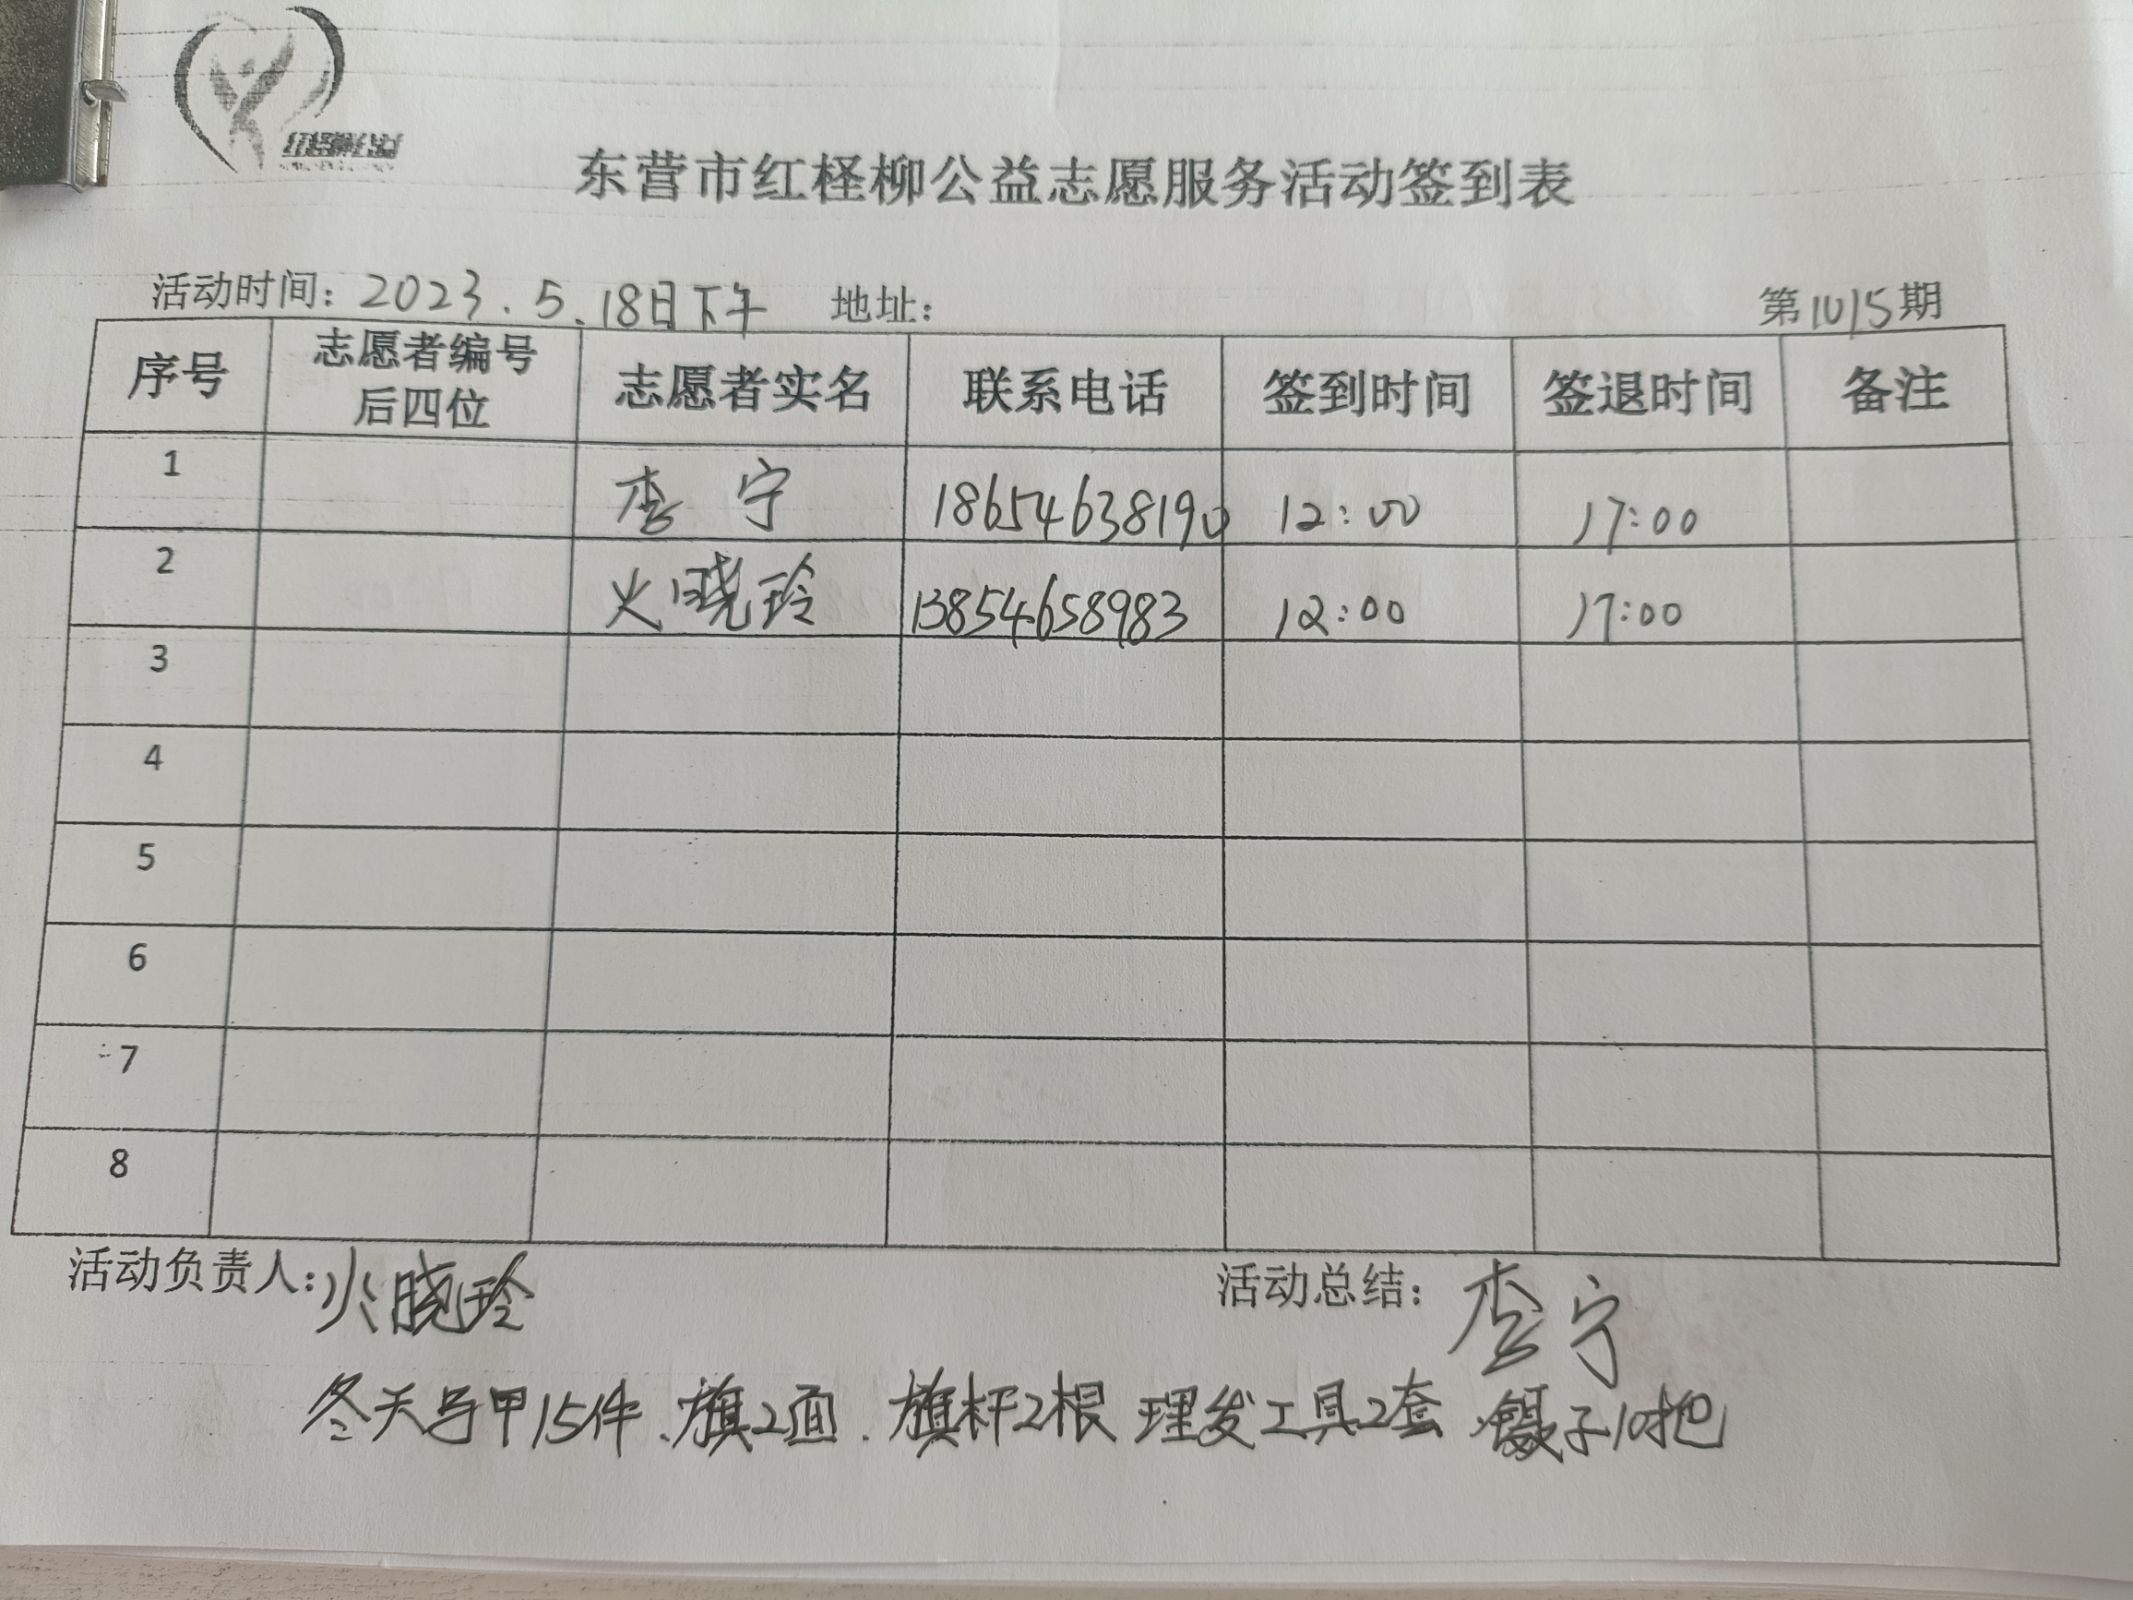 红柽柳公益
东营市红柽柳公益志愿服务活动签到表
活动时间：2023.5.18日下午 地址： 第1015期
序号 志愿者编号后四位 志愿者实名 联系电话 签到时间 签退时间 备注
1 李宁 18654638190 12:00 17:00
2 火晓玲 13854658983 12:00 17:00
3
4
5
6
7
8
活动负责人：火晓玲 活动总结：李宁
冬天马甲15件、旗2面、旗杆2根 理发工具2套 镊子10把